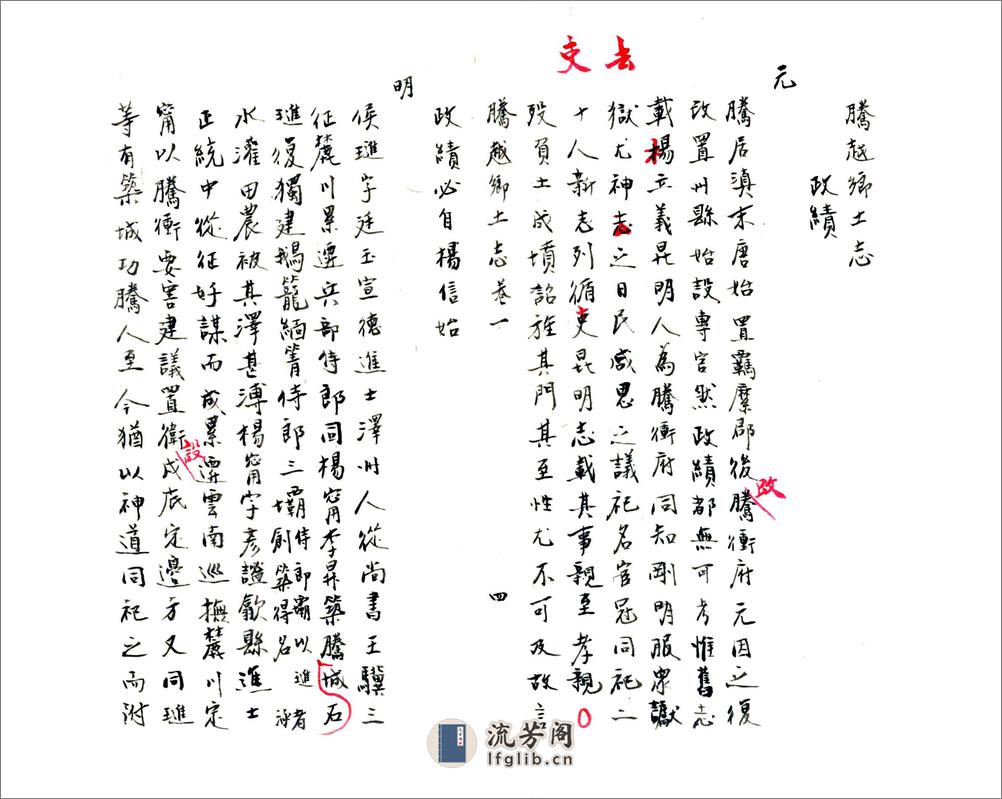 騰越鄉土志
政績
元
騰居滇末唐始置羈縻郡後騰衝府元因之復
改
改置州縣始設專官然政績都無可考惟舊志
載楊立義昆明人為騰衝府同知剛明服衆讞
獄尤神志之日民感思之議祀名宦冠同祀二
十人新志列循吏昆明志載其事親至孝親
歿負土成墳詔旌其門其至性尤不可及故言
去吏
騰越鄉土志卷一
四
政績必自楊信始
明
侯璡字廷玉宣德進士澤州人從尚書王驥三
征麓川累遷兵部侍郎同楊甯李昇築騰城石
璡復獨建鵝籠緬箐侍郎三壩侍郎壩以璡創築得名
水灌田農被其澤甚溥楊甯字彥謐歙縣進士
正統中從征好謀而成累遷雲南巡撫麓川定
甯以騰衝要害建議置衛戍底定邊方又同璡
設
等有築城功騰人至今猶以神道同祀之而附
流芳阁
lfglib.cn